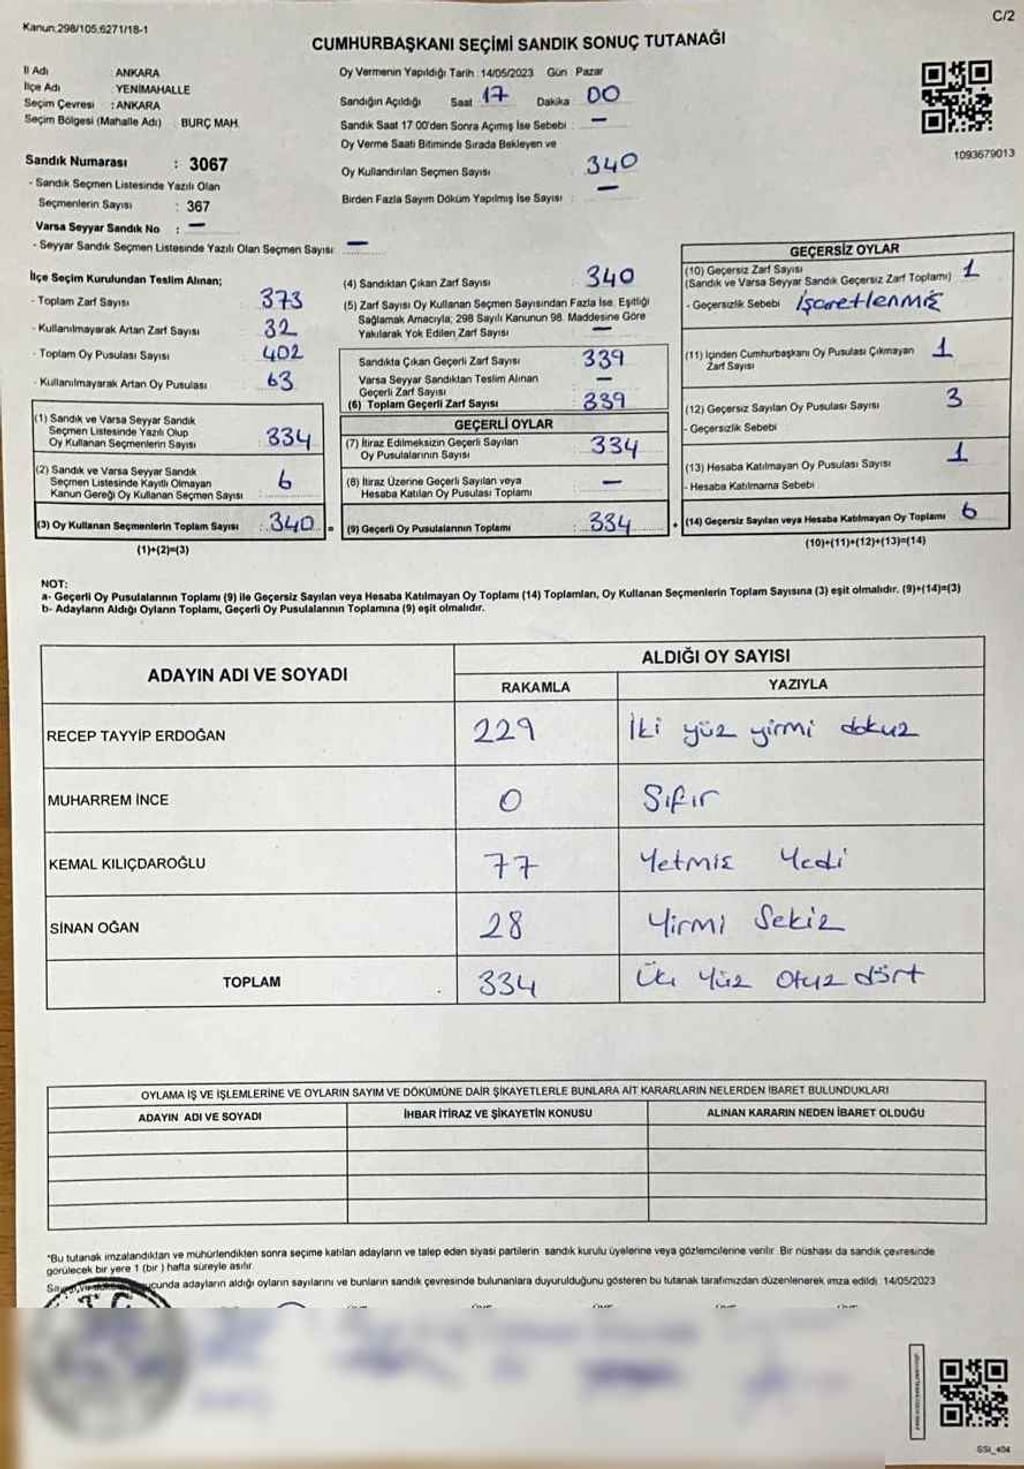 Kanun:298/105;6271/18-1
C/2
CUMHURBAŞKANI SEÇİMİ SANDIK SONUÇ TUTANAĞI
İl Adı : ANKARA
İlçe Adı : YENİMAHALLE
Seçim Çevresi : ANKARA
Seçim Bölgesi (Mahalle Adı) : BURÇ MAH.
Sandık Numarası : 3067
- Sandık Seçmen Listesinde Yazılı Olan
Seçmenlerin Sayısı : 367
Varsa Seyyar Sandık No : —
- Seyyar Sandık Seçmen Listesinde Yazılı Olan Seçmen Sayısı: —
Oy Vermenin Yapıldığı Tarih : 14/05/2023 Gün : Pazar
Sandığın Açıldığı Saat 17 Dakika 00
Sandık Saat 17:00'den Sonra Açılmış İse Sebebi : —
Oy Verme Saati Bitiminde Sırada Bekleyen ve
Oy Kullandırılan Seçmen Sayısı 340
Birden Fazla Sayım Döküm Yapılmış İse Sayısı : —
1093679013
İlçe Seçim Kurulundan Teslim Alınan;
- Toplam Zarf Sayısı 373
- Kullanılmayarak Artan Zarf Sayısı 32
- Toplam Oy Pusulası Sayısı 402
- Kullanılmayarak Artan Oy Pusulası 63
(1) Sandık ve Varsa Seyyar Sandık
Seçmen Listesinde Yazılı Olup
Oy Kullanan Seçmenlerin Sayısı 334
(2) Sandık ve Varsa Seyyar Sandık
Seçmen Listesinde Kayıtlı Olmayan
Kanun Gereği Oy Kullanan Seçmen Sayısı 6
(3) Oy Kullanan Seçmenlerin Toplam Sayısı : 340 =
(1)+(2)=(3)
(4) Sandıktan Çıkan Zarf Sayısı 340
(5) Zarf Sayısı Oy Kullanan Seçmen Sayısından Fazla İse, Eşitliği
Sağlamak Amacıyla; 298 Sayılı Kanunun 98. Maddesine Göre
Yakılarak Yok Edilen Zarf Sayısı —
Sandıkta Çıkan Geçerli Zarf Sayısı 339
Varsa Seyyar Sandıktan Teslim Alınan
Geçerli Zarf Sayısı —
(6) Toplam Geçerli Zarf Sayısı 339
GEÇERLİ OYLAR
(7) İtiraz Edilmeksizin Geçerli Sayılan
Oy Pusulalarının Sayısı 334
(8) İtiraz Üzerine Geçerli Sayılan veya
Hesaba Katılan Oy Pusulası Toplamı —
(9) Geçerli Oy Pusulalarının Toplamı : 334 +
GEÇERSİZ OYLAR
(10) Geçersiz Zarf Sayısı
(Sandık ve Varsa Seyyar Sandık Geçersiz Zarf Toplamı) 1
- Geçersizlik Sebebi İşaretlenmiş
(11) İçinden Cumhurbaşkanı Oy Pusulası Çıkmayan
Zarf Sayısı 1
(12) Geçersiz Sayılan Oy Pusulası Sayısı 3
- Geçersizlik Sebebi
(13) Hesaba Katılmayan Oy Pusulası Sayısı 1
- Hesaba Katılmama Sebebi
(14) Geçersiz Sayılan veya Hesaba Katılmayan Oy Toplamı 6
(10)+(11)+(12)+(13)=(14)
NOT:
a- Geçerli Oy Pusulalarının Toplamı (9) ile Geçersiz Sayılan veya Hesaba Katılmayan Oy Toplamı (14) Toplamları, Oy Kullanan Seçmenlerin Toplam Sayısına (3) eşit olmalıdır. (9)+(14)=(3)
b- Adayların Aldığı Oyların Toplamı, Geçerli Oy Pusulalarının Toplamına (9) eşit olmalıdır.
ADAYIN ADI VE SOYADI
ALDIĞI OY SAYISI
RAKAMLA YAZIYLA
RECEP TAYYİP ERDOĞAN 229 İki yüz yirmi dokuz
MUHARREM İNCE 0 Sıfır
KEMAL KILIÇDAROĞLU 77 Yetmiş Yedi
SİNAN OĞAN 28 Yirmi Sekiz
TOPLAM 334 Üç Yüz Otuz dört
OYLAMA İŞ VE İŞLEMLERİNE VE OYLARIN SAYIM VE DÖKÜMÜNE DAİR ŞİKAYETLERLE BUNLARA AİT KARARLARIN NELERDEN İBARET BULUNDUKLARI
ADAYIN ADI VE SOYADI İHBAR İTİRAZ VE ŞİKAYETİN KONUSU ALINAN KARARIN NEDEN İBARET OLDUĞU
*Bu tutanak imzalandıktan ve mühürlendikten sonra seçime katılan adayların ve talep eden siyasi partilerin sandık kurulu üyelerine veya gözlemcilerine verilir. Bir nüshası da sandık çevresinde
görülecek bir yere 1 (bir ) hafta süreyle asılır.
adayların aldığı oyların sayılarını ve bunların sandık çevresinde bulunanlara duyurulduğunu gösteren bu tutanak tarafımızdan düzenlenerek imza edildi. 14/05/2023
SSI_404